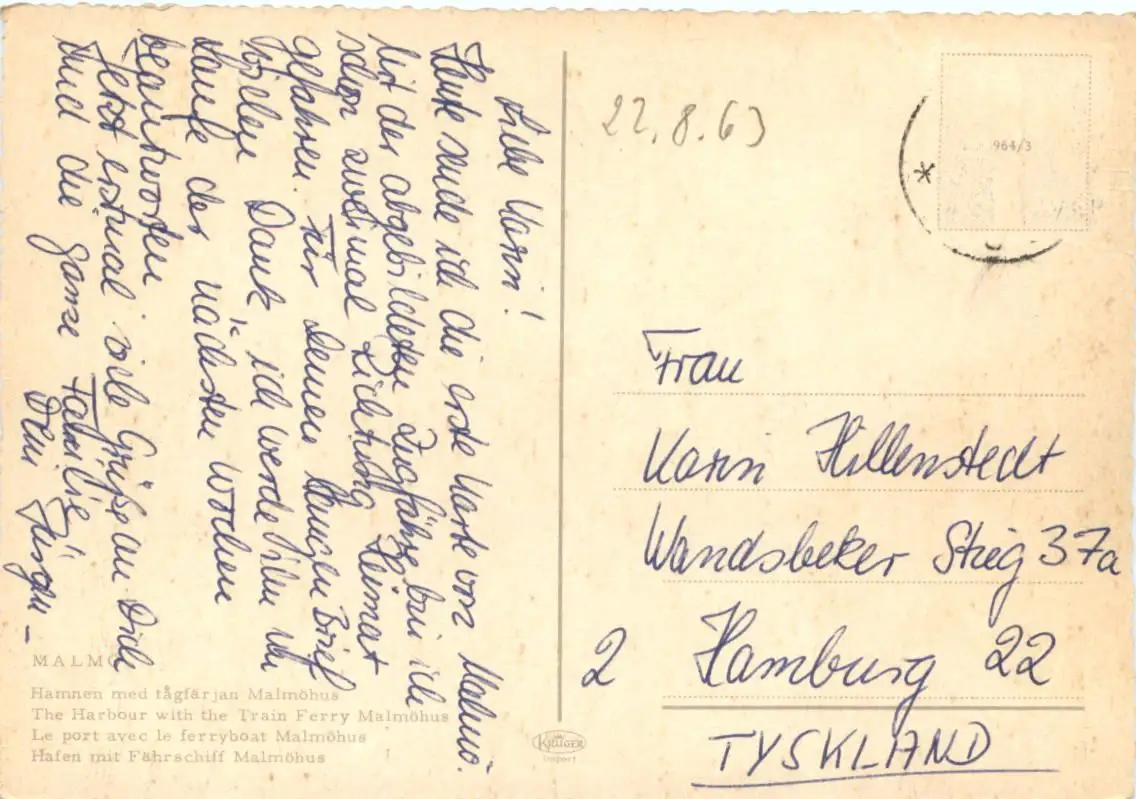 Liebe Karin!
Heute sende ich die erste Karte von Malmö.
Mit der abgebildeten Zugfähre bin ich
schon zweimal Richtung Heimat
gefahren. Für Deinen langen Brief
vielen Dank, ich werde ihn im
Laufe der nächsten Wochen
beantworten
Jetzt erstmal viele Grüße an Dich
und die ganze Familie
Dein Jürgen
22.8.63
964/3
Frau
Karin Hillenstedt
Wandsbeker Stieg 37a
2 Hamburg 22
TYSKLAND
MALMÖ
Hamnen med tågfärjan Malmöhus
The Harbour with the Train Ferry Malmöhus
Le port avec le ferryboat Malmöhus
Hafen mit Fährschiff Malmöhus
KRÜGER
import